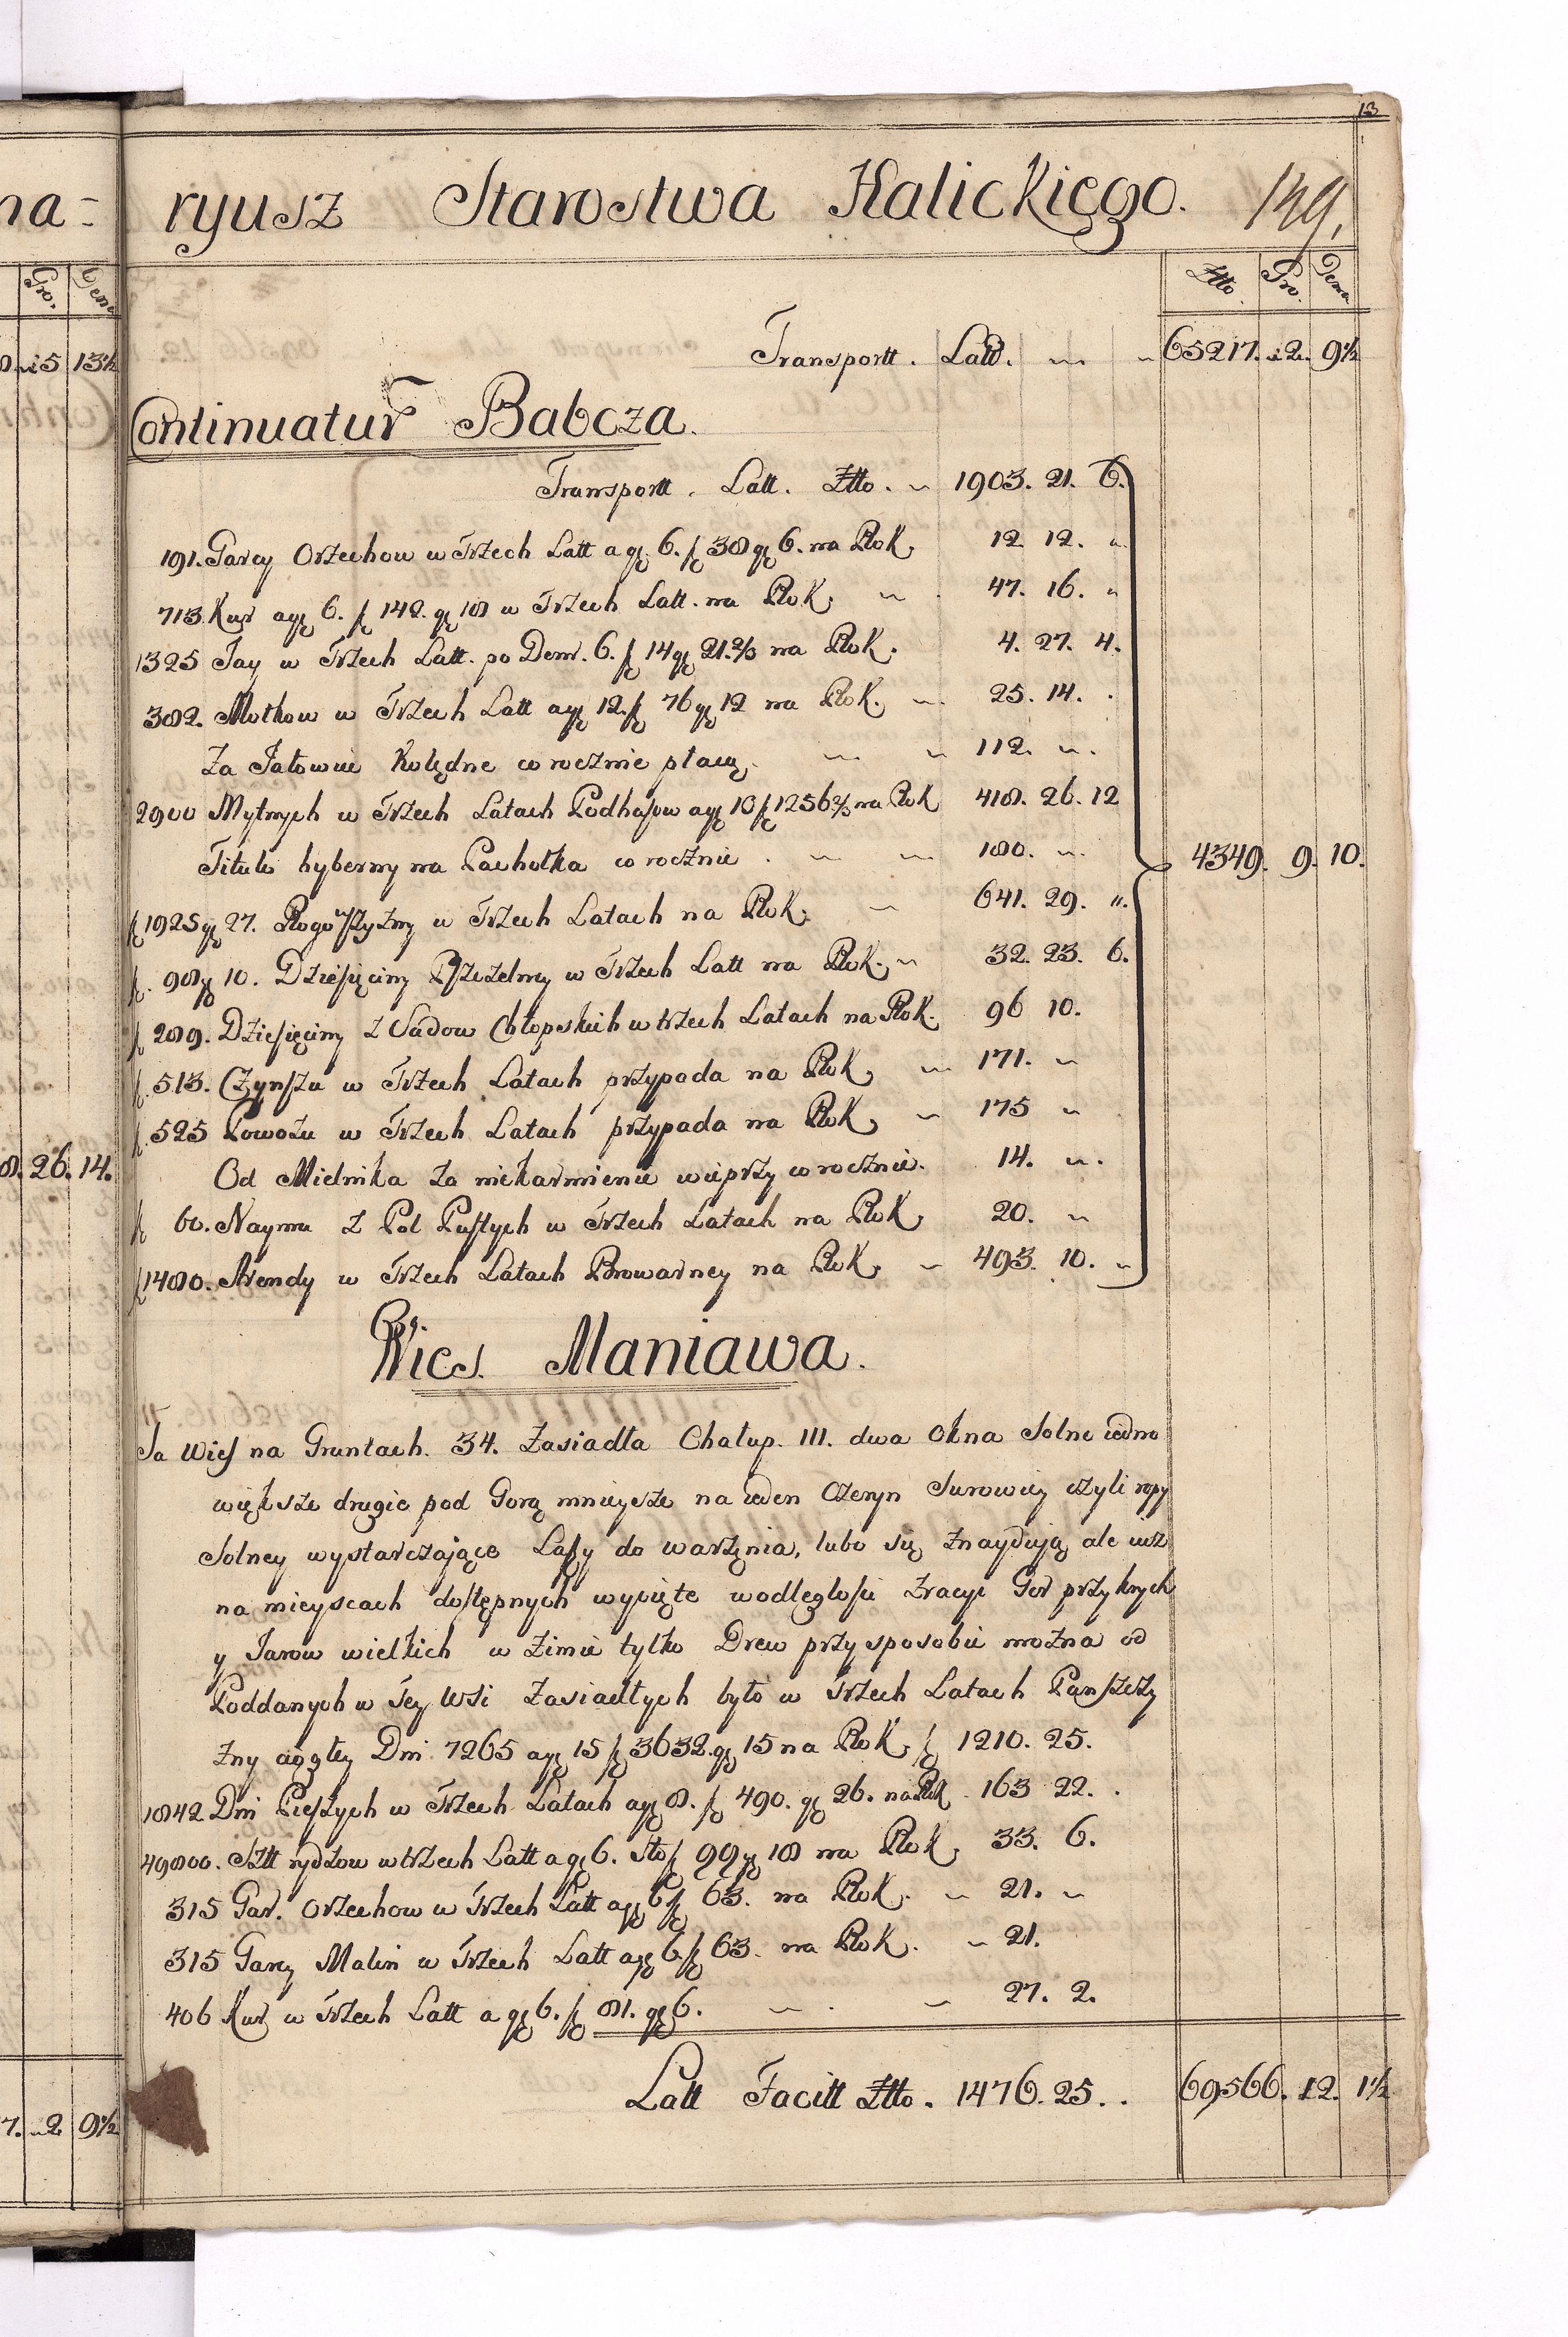 13
na- ryusz Starostwa Halickiego. 149.
Gro. Dena
Złło. Gro. Dena
15 13½
Transportt. Latt. 65217. 2. 9½
Continuatur Babcza.
Transportt. Latt. Złło. 1903. 21. 6.
191. Garcy Orzechow w Trzech Latt a gr 6. f 38 gr 6. na Rok. 12. 12.
713. Kur a gr 6. f 142. gr 18 w Trzech Latt. na Rok. 47. 16.
1325 Jay w Trzech Latt. po Dena. 6. f 14 gr 21.⅔ na Rok. 4. 27. 4.
382. Motkow w Trzech Latt a gr 12. f 76 gr 12 na Rok. 25. 14.
Za Jałowice Kolędne corocznie płacą. 112.
2900 Mytnych w Trzech Latach Podhasow a gr 13 f 1256⅔ na Rok 418. 26. 12
Titulo hyberny na Pachołka corocznie. 180.
f 1925 gr 27. Rogoszyzny w Trzech Latach na Rok. 641. 29.
4349. 9. 10.
f. 98 gr 10. Dziesięciny Pszczelney w Trzech Latt na Rok. 32. 23. 6.
f 289. Dziesięciny z Sadow Chłopskich w trzech Latach na Rok. 96 10.
f. 513. Czynszu w Trzech Latach przypada na Rok, 171.
f. 525 Powozu w Trzech Latach przypada na Rok, 175
26. 14.
Od Mielnika za niekarmienie wieprzy corocznie. 14.
f 60. Naymu z Pol Pustych w Trzech Latach na Rok, 20.
f 1480. Arendy w Trzech Latach Browarney na Rok, 493. 10.
Wies Maniawa.
Ta Wies na Gruntach. 34. Zasiadła Chałup. 111. dwa Okna Solne iedno
większe drugie pod Gorą mnieysze na ieden Czeryn Surowicy czyli ropy
Solney wystarczaiące Lasy do warzęnia, lubo się znayduią ale iusz
na mieyscach dostępnych wycięte w odległosci zracyi Gor przykrych
y Jarow wielkich w zimie tylko Drew przysposobić można od
Poddanych w Tey Wsi Zasiadłych było w Trzech Latach Panszczy
zny ciągłey Dni 7265 a gr 15 f 3632. gr 15 na Rok, f 1210. 25.
1842 Dni Pieszych w Trzech Latach a gr 8. f 490. gr 26. na Rok 163 22.
49800. Sztt rydzow w trzech Latt a gr 6. sto f 99 gr 18 na Rok, 33. 6.
315 Gar. Orzechow w Trzech Latt a gr 6 f 63. na Rok. 21.
315 Garcy Malin w Trzech Latt a gr 6. f 63. na Rok. 21.
406 Kur w Trzech Latt a gr 6. f 81. gr 6. 27. 2.
7. 2 9½
Latt Facitt Złło. 1476. 25. 69566. 12. 1½